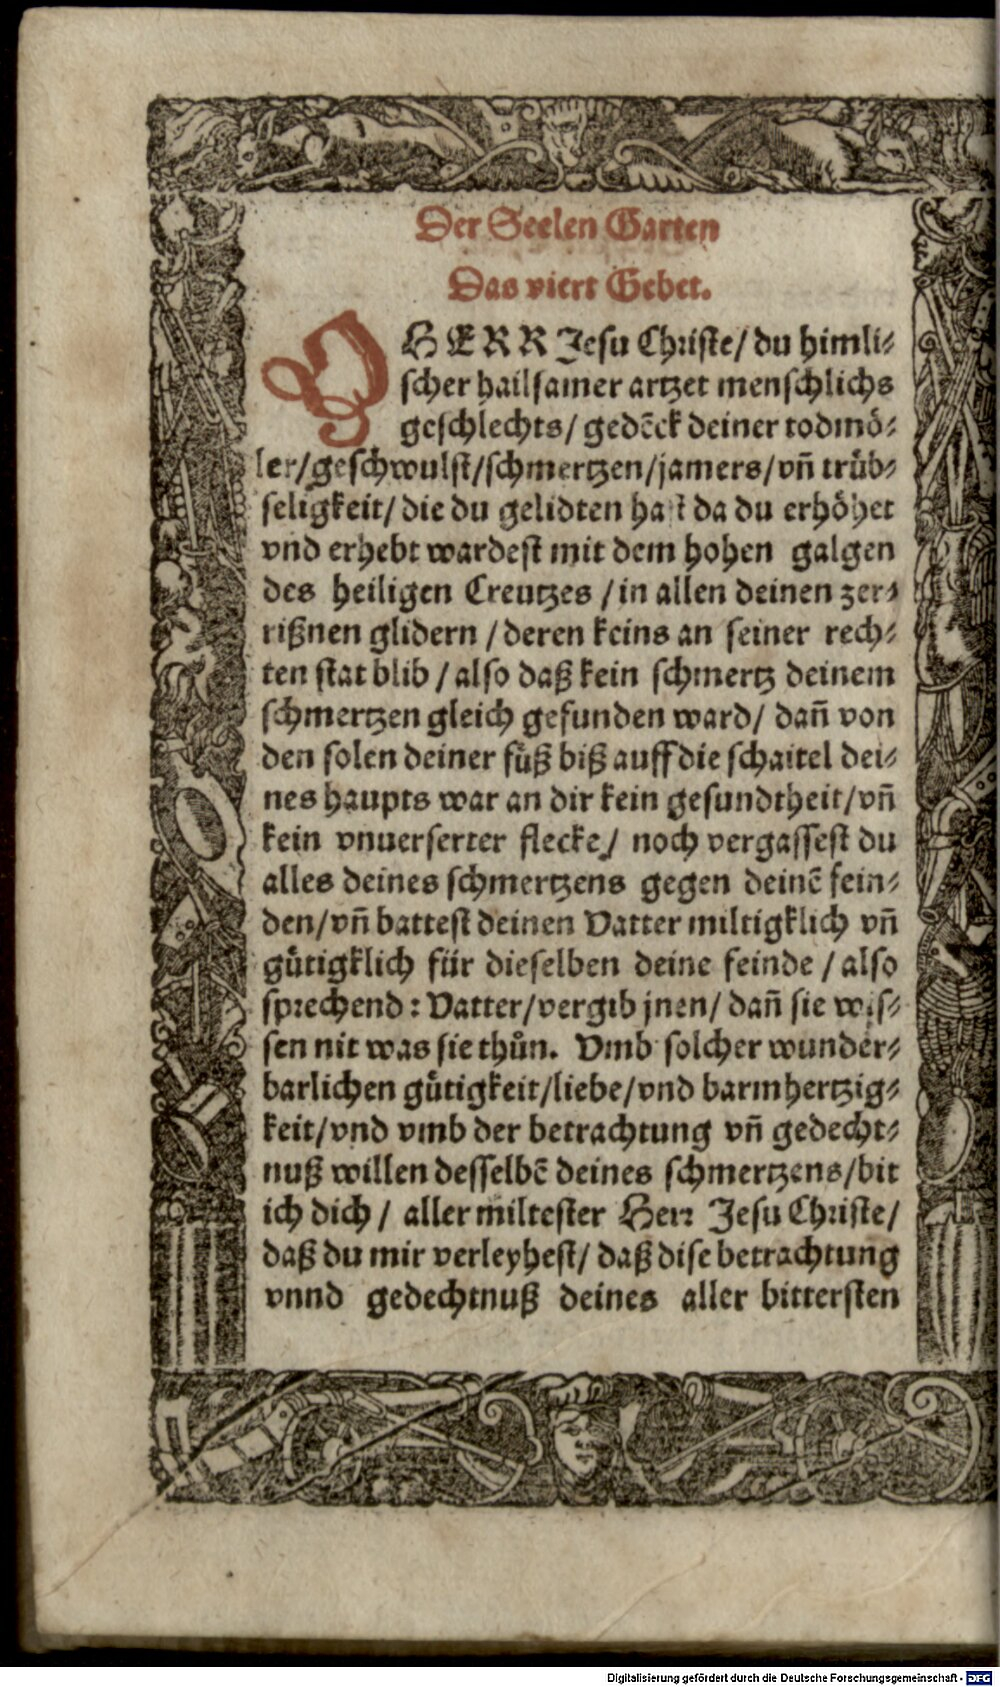 Der Seelen Garten
Das viert Gebet.
O HERR Jesu Christe/ du himli-
scher hailsamer artzet menschlichs
geschlechts/ gedēck deiner todmö-
ler/geschwulst/schmertzen/jamers/vn̄ trüb-
seligkeit/ die du gelidten hast da du erhöhet
vnd erhebt wardest mit dem hohen galgen
des heiligen Creutzes /in allen deinen zer-
rißnen glidern /deren keins an seiner rech-
ten stat blib / also daß kein schmertz deinem
schmertzen gleich gefunden ward/ dan̄ von
den solen deiner füß biß auff die schaitel dei-
nes haupts war an dir kein gesundtheit/vn̄
kein vnuerserter flecke/ noch vergassest du
alles deines schmertzens gegen deinē fein-
den/vn̄ battest deinen Vatter miltigklich vn̄
gütigklich für dieselben deine feinde / also
sprechend: Vatter/vergib jnen/ dan̄ sie wis-
sen nit was sie thůn. Vmb solcher wunder-
barlichen gütigkeit/liebe/vnd barmhertzig-
keit/vnd vmb der betrachtung vn̄ gedecht-
nuß willen desselbē deines schmertzens/bit
ich dich / aller miltester Herr Jesu Christe/
daß du mir verleyhest/ daß dise betrachtung
vnnd gedechtnuß deines aller bittersten
Digitalisierung gefördert durch die Deutsche Forschungsgemeinschaft - DFG